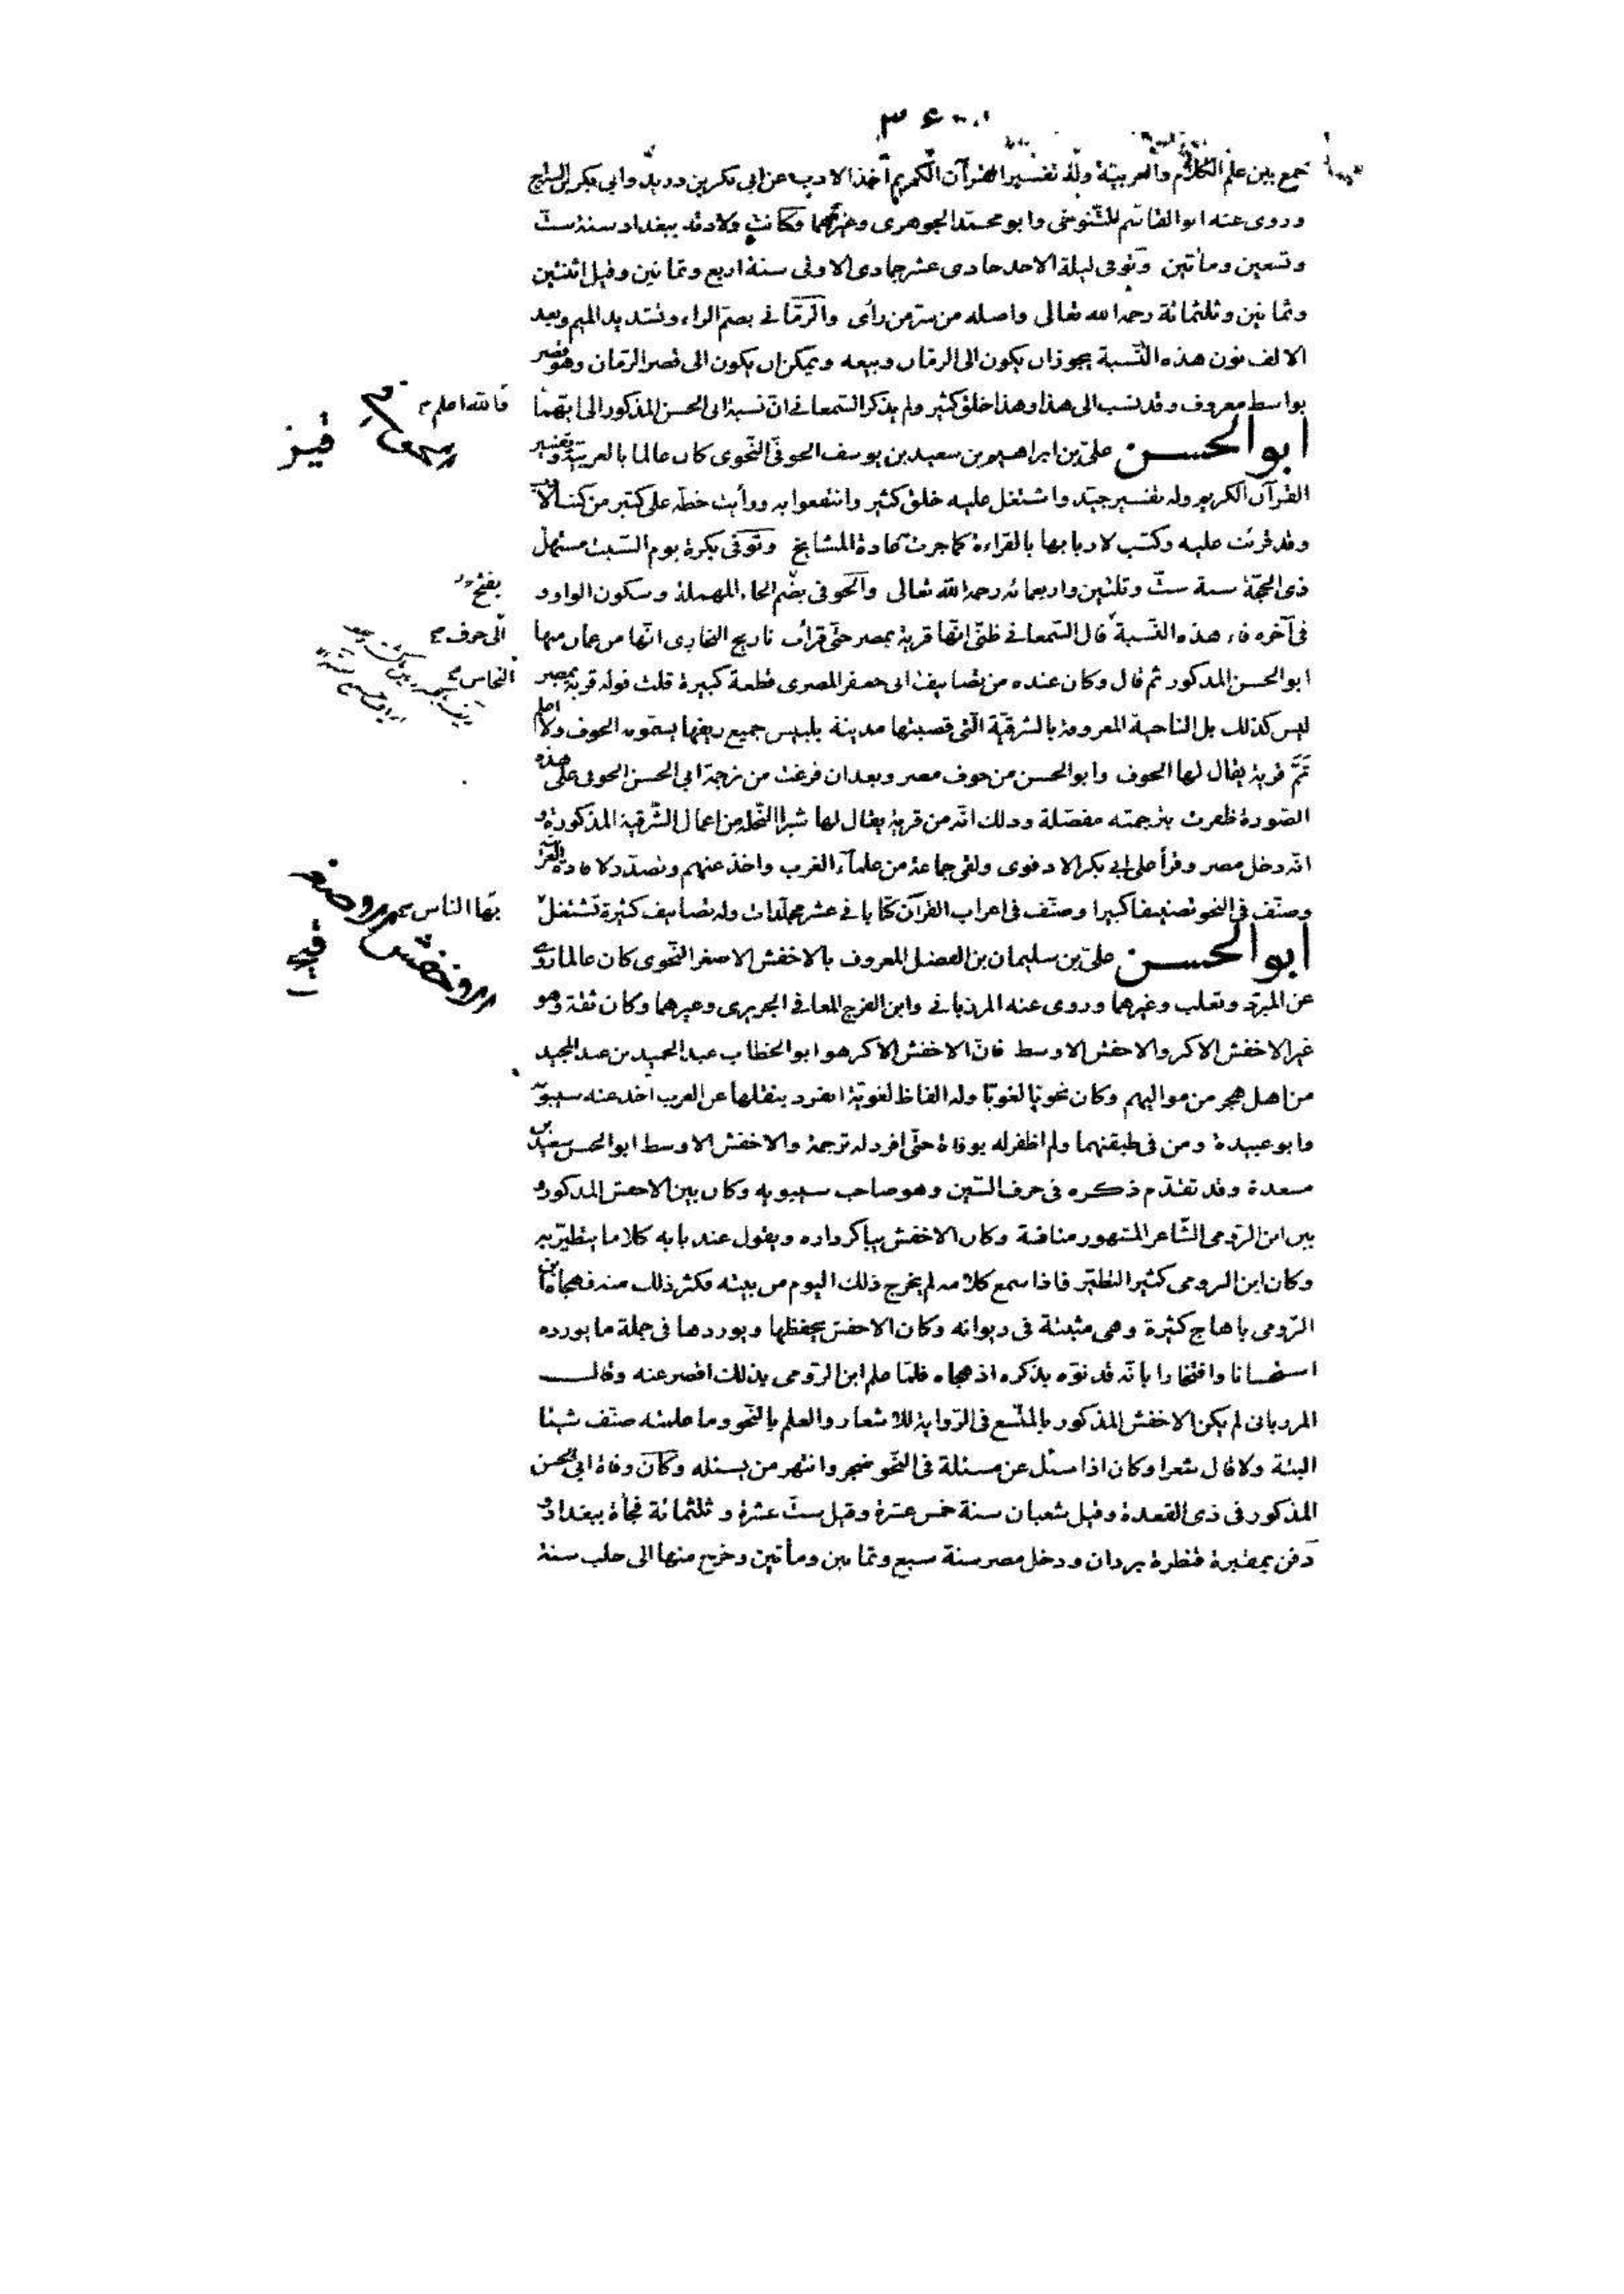 ٣٤٠
جمع بين علم الكلام والعربيّة وله تفسير القرآن الكريم أخذ الادب عن ابى بكر بن دريد وابى بكر بن السراج
وروى عنه ابو القاسم التنوخى وابو محمّد الجوهرى وغيرهما وكانت ولادته ببغداد سنة ستّ
وتسعين ومأتين وتوفى ليلة الاحد حادى عشر جمادى الاولى سنة اربع وثمانين وقيل اثنتين
وثمانين وثلثمائة رحمه الله تعالى واصله من سرّ من رأى والرمّانى بضم الراء وتشديد الميم وبعد
الالف نون هذه النّسبة يجوز ان يكون الى الرمان وبيعه ويمكن ان يكون الى قصر الرّمان وهو قصر
بواسط معروف وقد نسب الى هذا وهذا خلق كثير ولم يذكر السّمعانى انّ نسبة ابى الحسن المذكور الى ايّهما
فالله اعلم
ابو الحسن علىّ بن ابراهيم بن سعيد بن يوسف الحوفىّ النّحوى كان عالما بالعربيّة وتفسير
القرآن الكريم وله تفسير جيّد واشتغل عليه خلق كثير وانتفعوا به ورأيت خطّه على كثير من كتب الادب
وقد قرئت عليه وكتب لاربابها بالقراءة كما جرت عادة المشايخ وتوفى بكرة يوم السّبت مستهلّ
ذى الحجّة سنة ستّ وثلثين واربعمائه رحمه الله تعالى والحوفى بضمّ الحاء المهملة وسكون الواو و
بفتح
فى آخره فاء هذه النّسبة قال السّمعانى ظنّى انّها قرية بمصر حتّى قرأت تاريخ البخارى انّها من عمان منها
الى حوف
ابو الحسن المذكور ثم قال وكان عنده من تصانيف ابى جعفر المصرى قطعة كبيرة قلت قوله قرية بمصر
النحاس
ليس كذلك بل الناحية المعروفة بالشرقيّة الّتى قصبتها مدينة بلبيس جميع ريفها يسمّونه الحوف ولا اعلم
ثمّ قرية يقال لها الحوف وابو الحسن من حوف مصر وبعد ان فرغت من ترجمة ابى الحسن الحوفى على هذه
الصّورة ظفرت بترجمته مفصّلة وذلك انّه من قرية يقال لها شبرا النّخلة من اعمال الشّرقية المذكورة و
انّه دخل مصر وقرأ على ابى بكر الادفوى ولقى جماعة من علمآء الغرب واخذ عنهم وتصدّر لافادة العربيّة
وصنّف فى النحو تصنيفا كبيرا وصنّف فى اعراب القرآن كتابا فى عشر مجلّدات وله تصانيف كثيرة تشتغل
بها الناس
ابو الحسن علىّ بن سليمان بن الفضل المعروف بالاخفش الاصغر النّحوى كان عالما روى
عن المبرّد وثعلب وغيرهما وروى عنه المرزبانى وابن الفرج المعافى الجريرى وغيرهما وكان ثقة وهو
غير الاخفش الاكبر والاخفش الاوسط فانّ الاخفش الاكبر هو ابو الخطاب عبد الحميد بن عبد المجيد
من اهل هجر من مواليهم وكان نحويّا لغويّا وله الفاظ لغويّة انفرد بنقلها عن العرب اخذ عنه سيبويه
وابو عبيدة ومن فى طبقتهما ولم اظفر له بوفاة حتّى افرد له ترجمة والاخفش الاوسط ابو الحسن سعيد بن
مسعدة وقد تقدّم ذكره فى حرف السّين وهو صاحب سيبويه وكان بين الاخفش المذكور و
بين ابن الرّومى الشّاعر المشهور منافسة وكان الاخفش يباكر داره ويقول عند بابه كلاما يتطيّر به
وكان ابن الرومى كثير التطيّر فاذا سمع كلامه لم يخرج ذلك اليوم من بيته فكثر ذلك منه فهجاه ابن
الرّومى باهاج كثيرة وهى مثبتة فى ديوانه وكان الاخفش يحفظها ويوردها فى جملة ما يورده
استحسانا وافتخارا بانّه قد نوّه بذكره اذ هجاه فلمّا علم ابن الرّومى بذلك اقصر عنه وقال
المرزبانى لم يكن الاخفش المذكور بالمتّسع فى الرّواية للاشعار والعلم بالنّحو وما علمته صنّف شيئا
البتة ولا قال شعرا وكان اذا سئل عن مسئلة فى النّحو ضجر وانتهر من يسئله وكان وفاة ابى الحسن
المذكور فى ذى القعدة وقيل شعبان سنة خمس عشرة وقيل ستّ عشرة وثلثمائة فجأة ببغداد و
دفن بمقبرة قنطرة بردان ودخل مصر سنة سبع وثمانين ومأتين وخرج منها الى حلب سنة